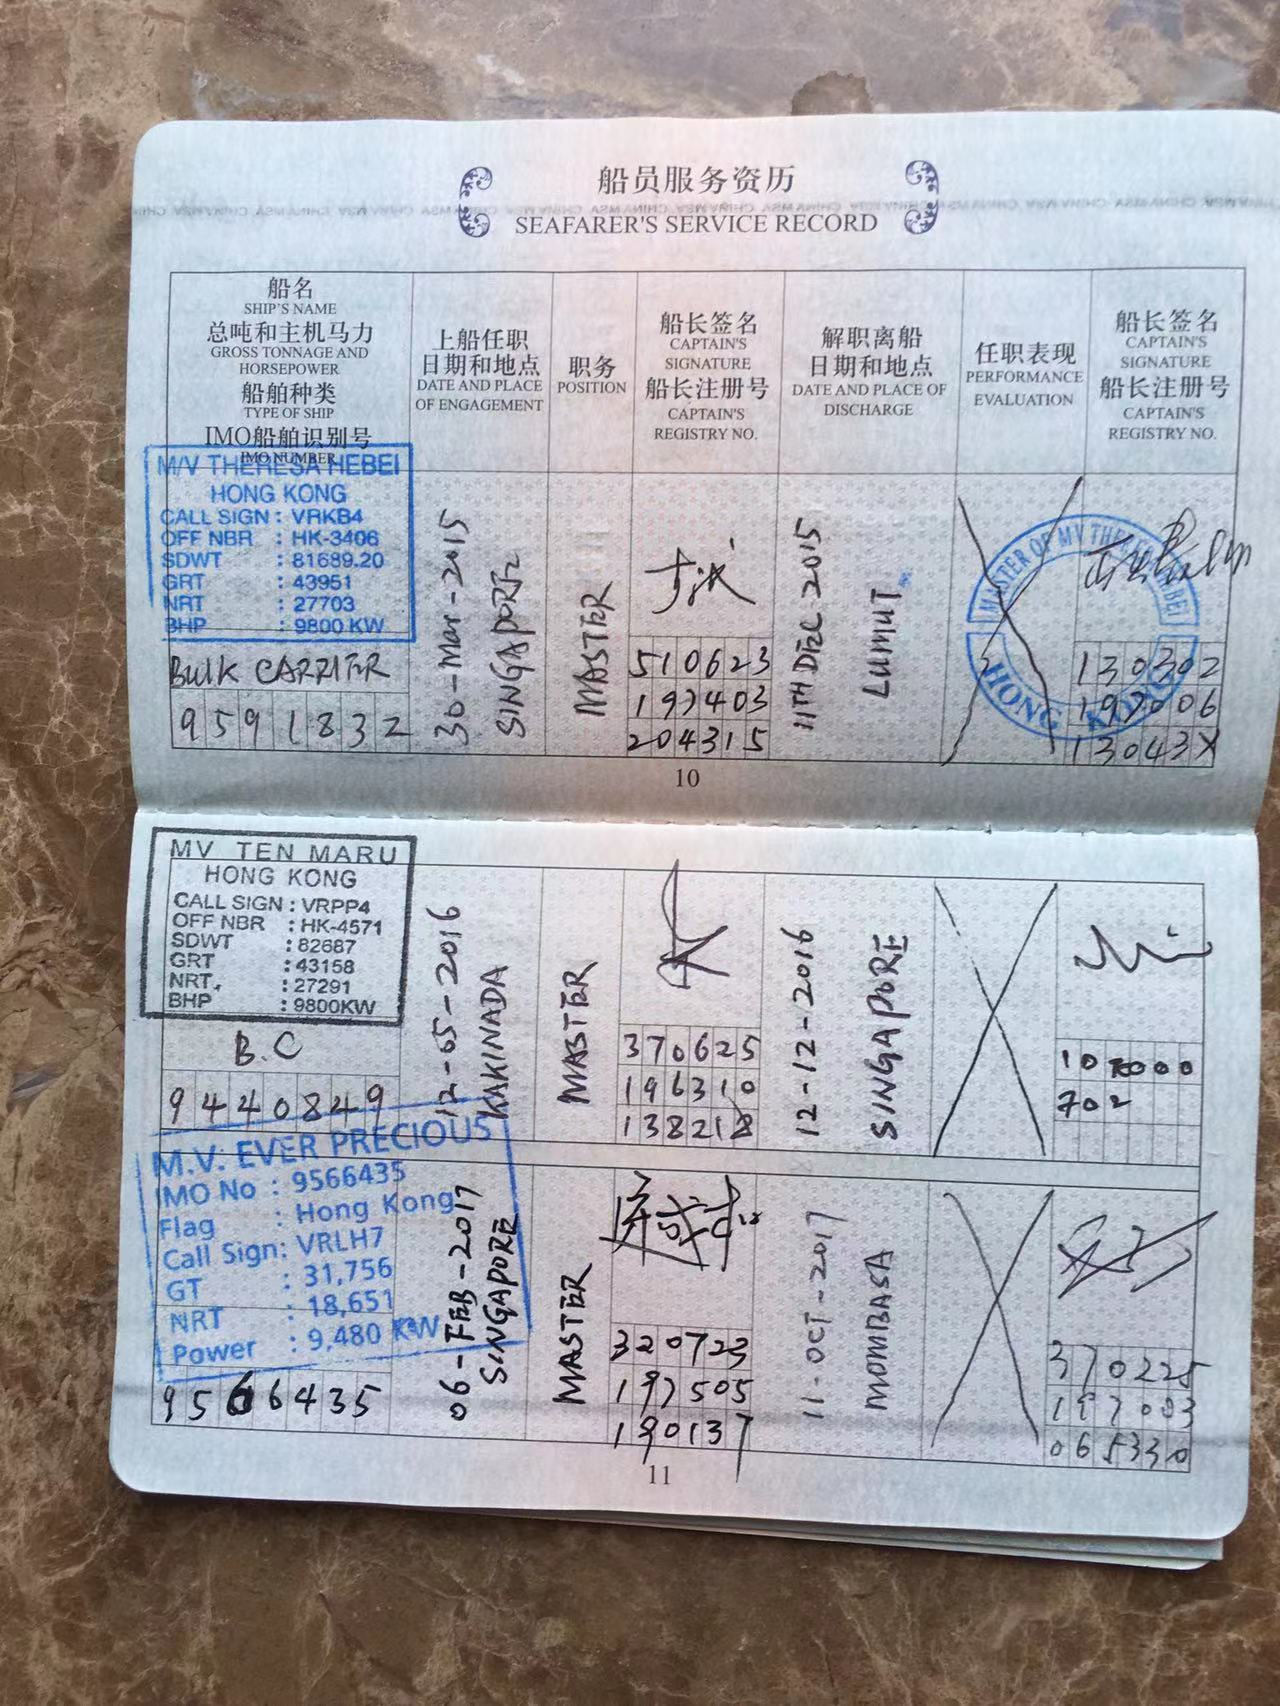 船员服务资历
SEAFARER'S SERVICE RECORD
船名
SHIP'S NAME
总吨和主机马力
GROSS TONNAGE AND
HORSEPOWER
船舶种类
TYPE OF SHIP
IMO船舶识别号
IMO NUMBER
上船任职
日期和地点
DATE AND PLACE
OF ENGAGEMENT
职务
POSITION
船长签名
CAPTAIN'S
SIGNATURE
船长注册号
CAPTAIN'S
REGISTRY NO.
解职离船
日期和地点
DATE AND PLACE OF
DISCHARGE
任职表现
PERFORMANCE
EVALUATION
船长签名
CAPTAIN'S
SIGNATURE
船长注册号
CAPTAIN'S
REGISTRY NO.
M/V THERESA HEBEI
HONG KONG
CALL SIGN : VRKB4
OFF NBR : HK-3406
SDWT : 81689.20
GRT : 43951
NRT : 27703
BHP : 9800 KW
BULK CARRIER
9591832
30-Mar-2015
SINGAPORE
MASTER
510623
197403
204315
11TH DEC 2015
LUMUT
MASTER OF MV THERESA HEBEI
HONG KONG
130302
197006
13043X
10
MV TEN MARU
HONG KONG
CALL SIGN : VRPP4
OFF NBR : HK-4571
SDWT : 82687
GRT : 43158
NRT. : 27291
BHP : 9800KW
B.C
9440849
12-05-2016
KAKINADA
MASTER
370625
196310
138218
12-12-2016
SINGAPORE
107000
702
M.V. EVER PRECIOUS
IMO No : 9566435
Flag : Hong Kong
Call Sign: VRLH7
GT : 31,756
NRT : 18,651
Power : 9,480 KW
9566435
06-FEB-2017
SINGAPORE
MASTER
320723
197505
190137
11-OCT-2017
MOMBASA
370225
197003
065330
11